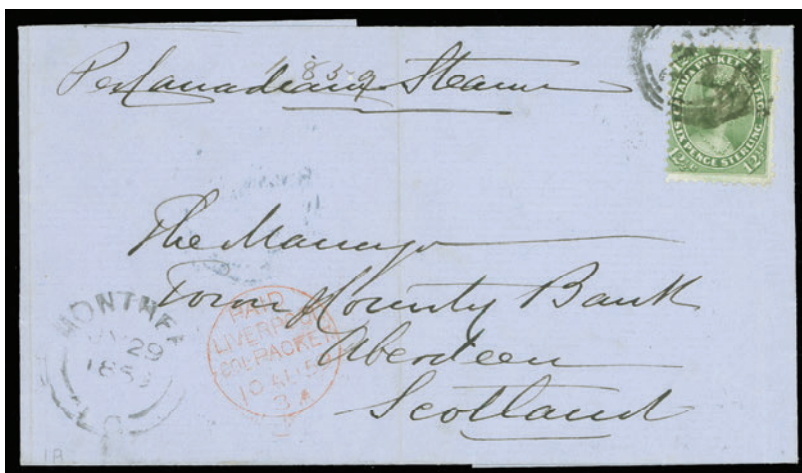 1859
Per Canadian Steamer
CANADA PACKET POSTAGE
SIX PENCE STERLING
12½
The Manager
Town & County Bank
Aberdeen
Scotland
MONTREAL
29
1859
PAID
LIVERPOOL
COL. PACKET
10 AU 59
3 A